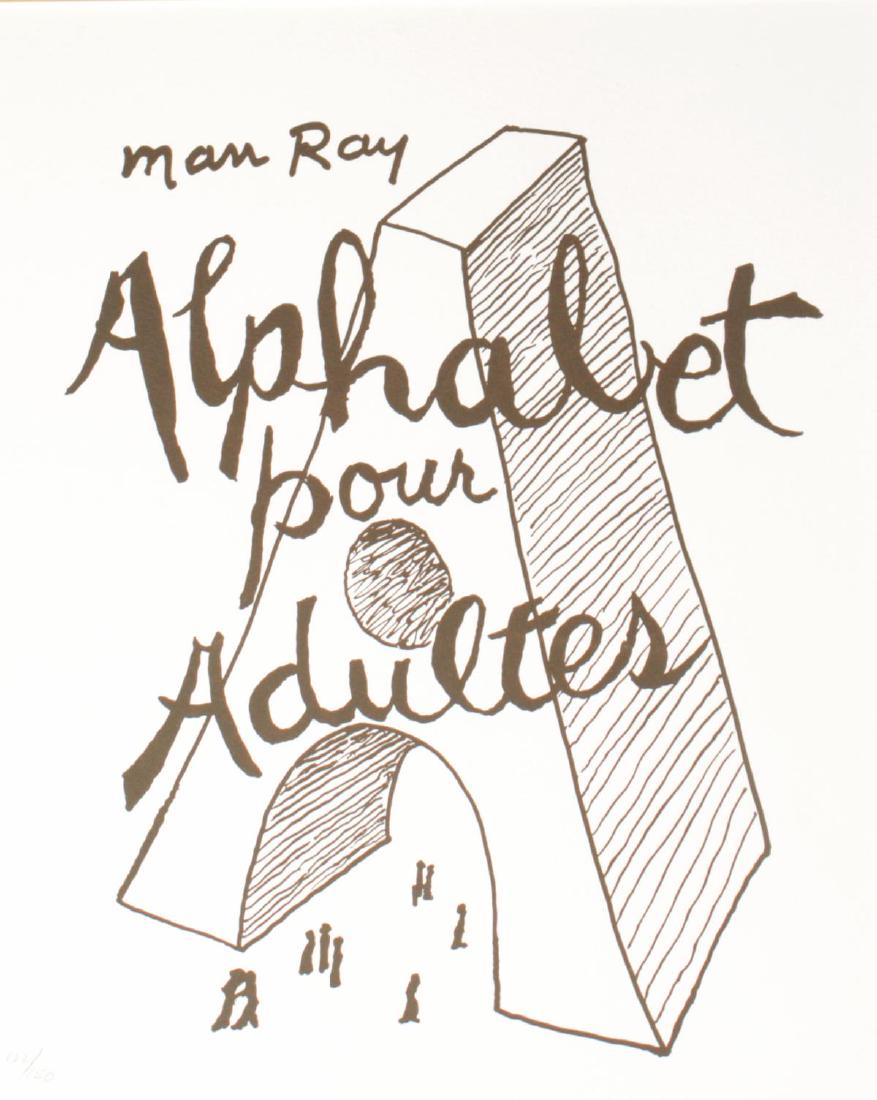 man Ray
Alphabet
pour
Adultes